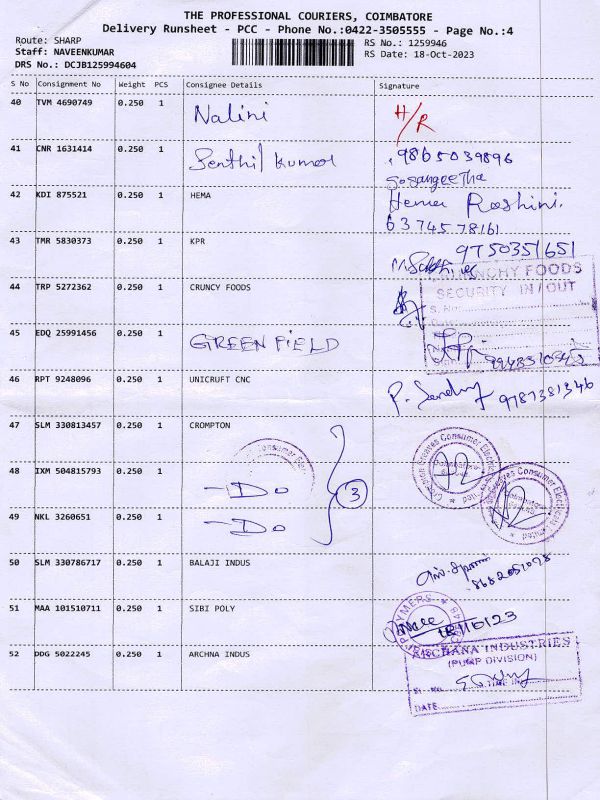 THE PROFESSIONAL COURIERS, COIMBATORE
Delivery Runsheet - PCC - Phone No.:0422-3505555 - Page No.:4
Route: SHARP
RS No.: 1259946
Staff: NAVEENKUMAR
RS Date: 18-Oct-2023
DRS No.: DCJB125994604
S No Consignment No Weight PCS Consignee Details Signature
40 TVM 4690749 0.250 1 Nalini H/R
41 CNR 1631414 0.250 1 Senthil Kumar 9865039896
Sosangeetha
42 KDI 875521 0.250 1 HEMA Hema Roshini.
6374578161
43 TMR 5830373 0.250 1 KPR 9750351651
44 TRP 5272362 0.250 1 CRUNCY FOODS
CRUNCHY FOODS
SECURITY IN/OUT
45 EDQ 25991456 0.250 1 GREEN FIELD
46 RPT 9248096 0.250 1 UNICRUFT CNC 9787381346
47 SLM 330813457 0.250 1 CROMPTON
48 IXM 504815793 0.250 1 -Do
3
49 NKL 3260651 0.250 1 -Do
Crompton Greaves Consumer Electricals Limited
Coimbatore
50 SLM 330786717 0.250 1 BALAJI INDUS
51 MAA 101510711 0.250 1 SIBI POLY
POLYMERS
52 DDG 5022245 0.250 1 ARCHNA INDUS
ARCHANA INDUSTRIES
(PUMP DIVISION)
SI. No.
TIME IN
DATE